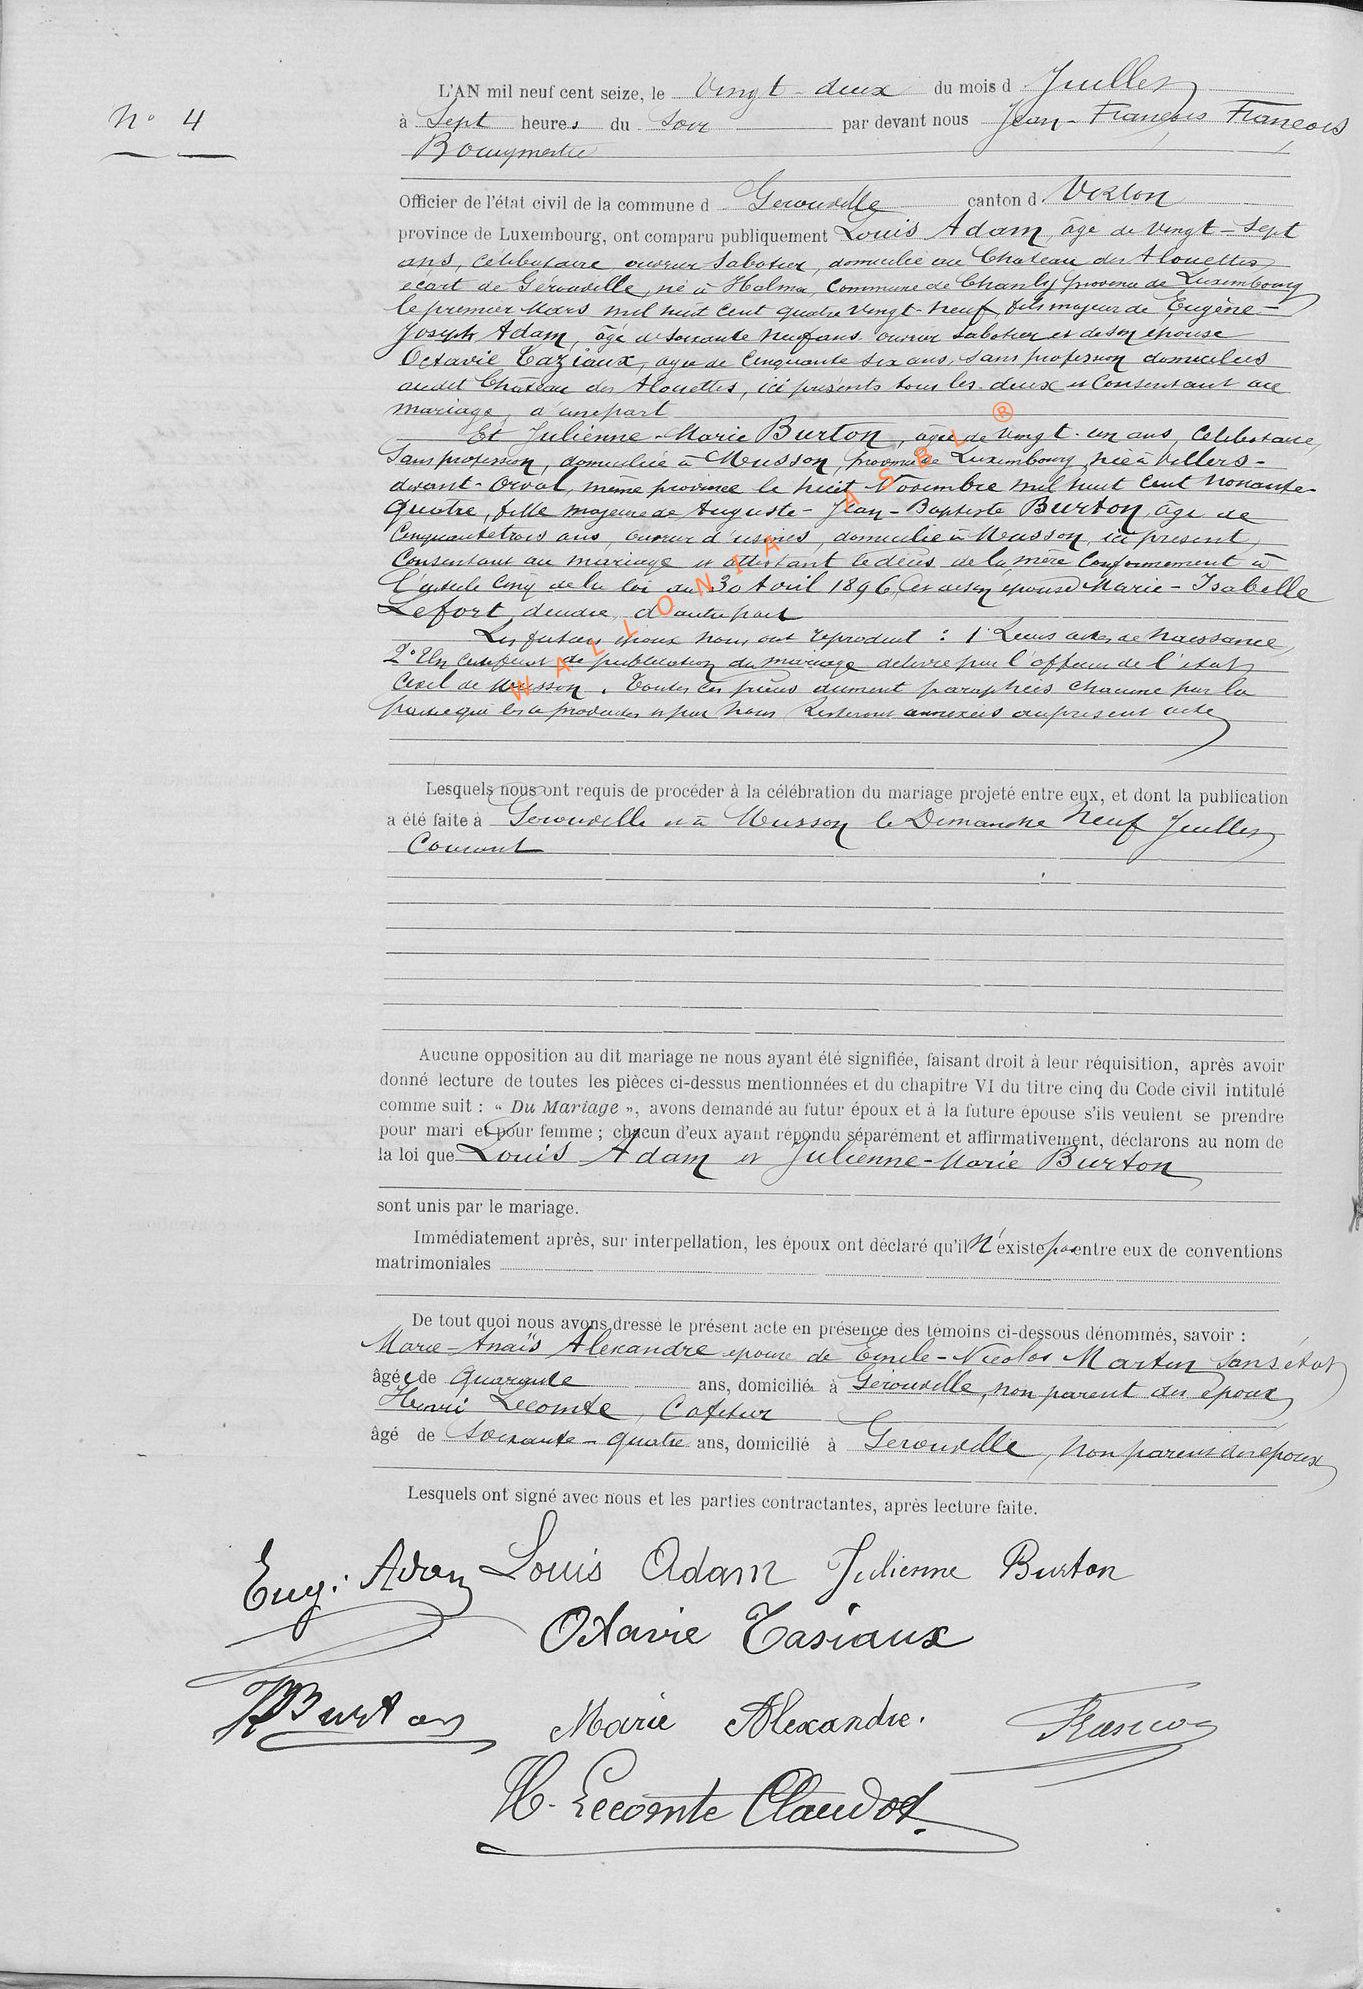 N° 4
L'AN mil neuf cent seize, le Vingt-deux du mois d Juillet
à Sept heures du Soir par devant nous Jean-François François
Bourgmestre
Officier de l'état civil de la commune d Gerouville canton d Virton
province de Luxembourg, ont comparu publiquement Louis Adam, âgé de vingt-sept
ans, célibataire ouvrier Sabotier, domicilié au Chateau des Alouettes
écart de Gerouville, né à Halma, Commune de Chanly, province de Luxembourg
le premier Mars mil huit cent quatre vingt-neuf, fils majeur de Eugène-
Joseph Adam, âgé de soixante neuf ans ouvrier sabotier et de son épouse
Octavie Taziaux, agée de cinquante six ans, sans profession domiciliés
audit Château des Alouettes, ici présents tous les deux et Consentant au
mariage, d'une part
Et Julienne-Marie Burton, âgée de Vingt-un ans, célibataire,
Sans profession, domiciliée à Musson, province de Luxembourg, née à Villers-
devant-Orval, même province le huit Novembre mil huit Cent nonante-
quatre, fille majeure de Auguste-Jean-Baptiste Burton, âgé de
Cinquante trois ans, ouvrier d'usines, domicilié à Musson, ici présent,
Consentant au mariage et attestant le décès de la mère Conformément à
l'article Cinq de la loi du 30 Avril 1896, et de son épouse Marie-Isabelle
Lefort d'autre part
Les futurs époux nous ont reproduit : 1° Leurs actes de naissance,
2° Un Certificat de publication du mariage délivré par l'officier de l'état
Civil de Musson. Toutes ces pièces dument paraphées chacune par la
partie qui les a produites et par Nous Resteront annexées au présent acte
WALLONIA ASBL ®
Lesquels nous ont requis de procéder à la célébration du mariage projeté entre eux, et dont la publication
a été faite à Gerouville et à Musson le Dimanche neuf Juillet
Courant
Aucune opposition au dit mariage ne nous ayant été signifiée, faisant droit à leur réquisition, après avoir
donné lecture de toutes les pièces ci-dessus mentionnées et du chapitre VI du titre cinq du Code civil intitulé
comme suit : « Du Mariage », avons demandé au futur époux et à la future épouse s'ils veulent se prendre
pour mari et pour femme ; chacun d'eux ayant répondu séparément et affirmativement, déclarons au nom de
la loi que Louis Adam et Julienne-Marie Burton
sont unis par le mariage.
Immédiatement après, sur interpellation, les époux ont déclaré qu'il N'existe pas entre eux de conventions
matrimoniales
De tout quoi nous avons dressé le présent acte en présence des témoins ci-dessous dénommés, savoir :
Marie-Anaïs Alexandre epouse de Emile-Nicolas Martin sans état
âgée de quarante ans, domiciliée à Gérouville, non parent des époux
Henri Lecomte, Cafetier
âgé de Soixante-quatre ans, domicilié à Gerouville, non parent des époux
Lesquels ont signé avec nous et les parties contractantes, après lecture faite.
Eug. Adam Louis Adam Julienne Burton
Octavie Tasiaux
Burton Marie Alexandre. François
H. Lecomte Claudot.